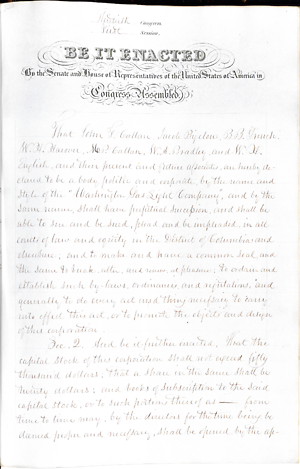 Congress
Session.
BE IT ENACTED
By the Senate and House of Representatives of the United States of America in
Congress Assembled,
That John
W. H. and W. H.
English, and their present and future associates, are hereby de-
clared to be a body politic and corporate, by the name and
style of the "Washington Gas Light Company", and by the
same name, shall have perpetual succession, and shall be
able to sue and be sued, plead and be impleaded, in all
courts of law and equity in the District of Columbia and
elsewhere, and to make and have a common seal, and
the same to break, alter, and renew, at pleasure; to ordain and
establish such by-laws, ordinances, and regulations, and
generally to do every act and thing necessary to carry
into effect this act, or to promote the object and design
of this corporation.
Sec. 2. And be it further enacted, That the
capital stock of this corporation shall not exceed fifty
thousand dollars; that a share in the same shall be
twenty dollars; and books of subscription to the said
capital stock, or to such portions thereof as — from
time to time may, by the directors for the time being be
deemed proper and necessary, shall be opened by the ap-